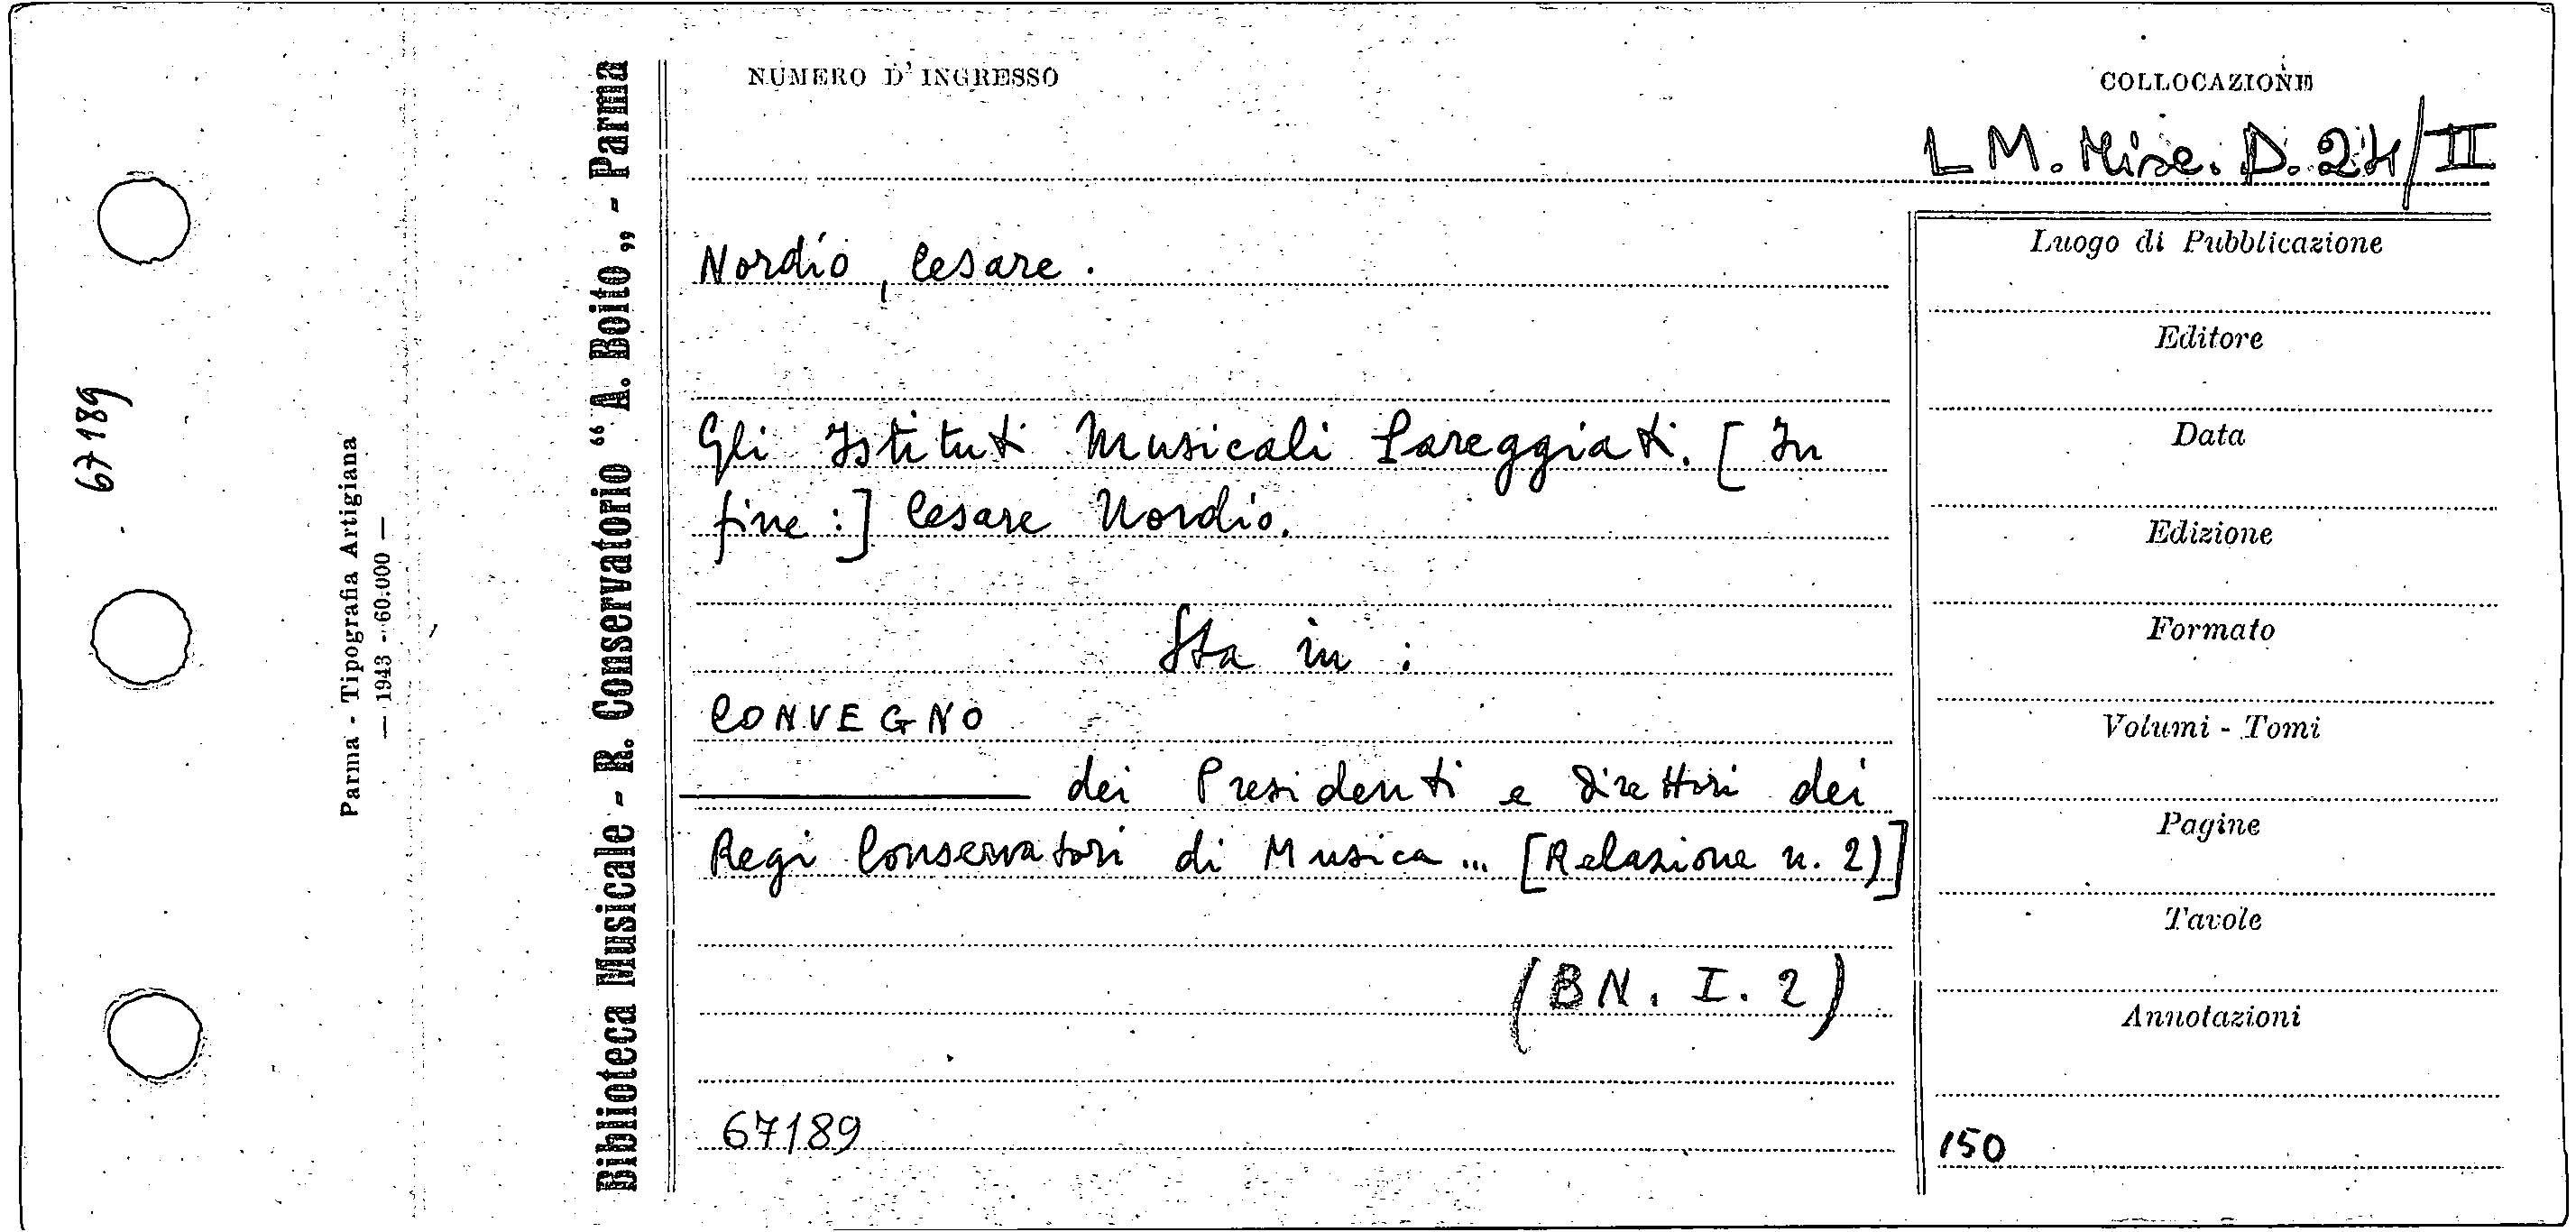 67189
Parma - Tipografia Artigiana
— 1943 - 60.000 —
Biblioteca Musicale - R. Conservatorio “A. Boito„ - Parma
NUMERO D'INGRESSO
COLLOCAZIONE
LM. Misc. D. 24/II
Nordio, Cesare.
Gli Istituti Musicali Pareggiati. [In
fine:] Cesare Nordio.
Sta in:
CONVEGNO
——— dei Presidenti e Direttori dei
Regi Conservatori di Musica... [Relazione n. 2)]
(BN. I. 2)
67189
Luogo di Pubblicazione
Editore
Data
Edizione
Formato
Volumi - Tomi
Pagine
Tavole
Annotazioni
150